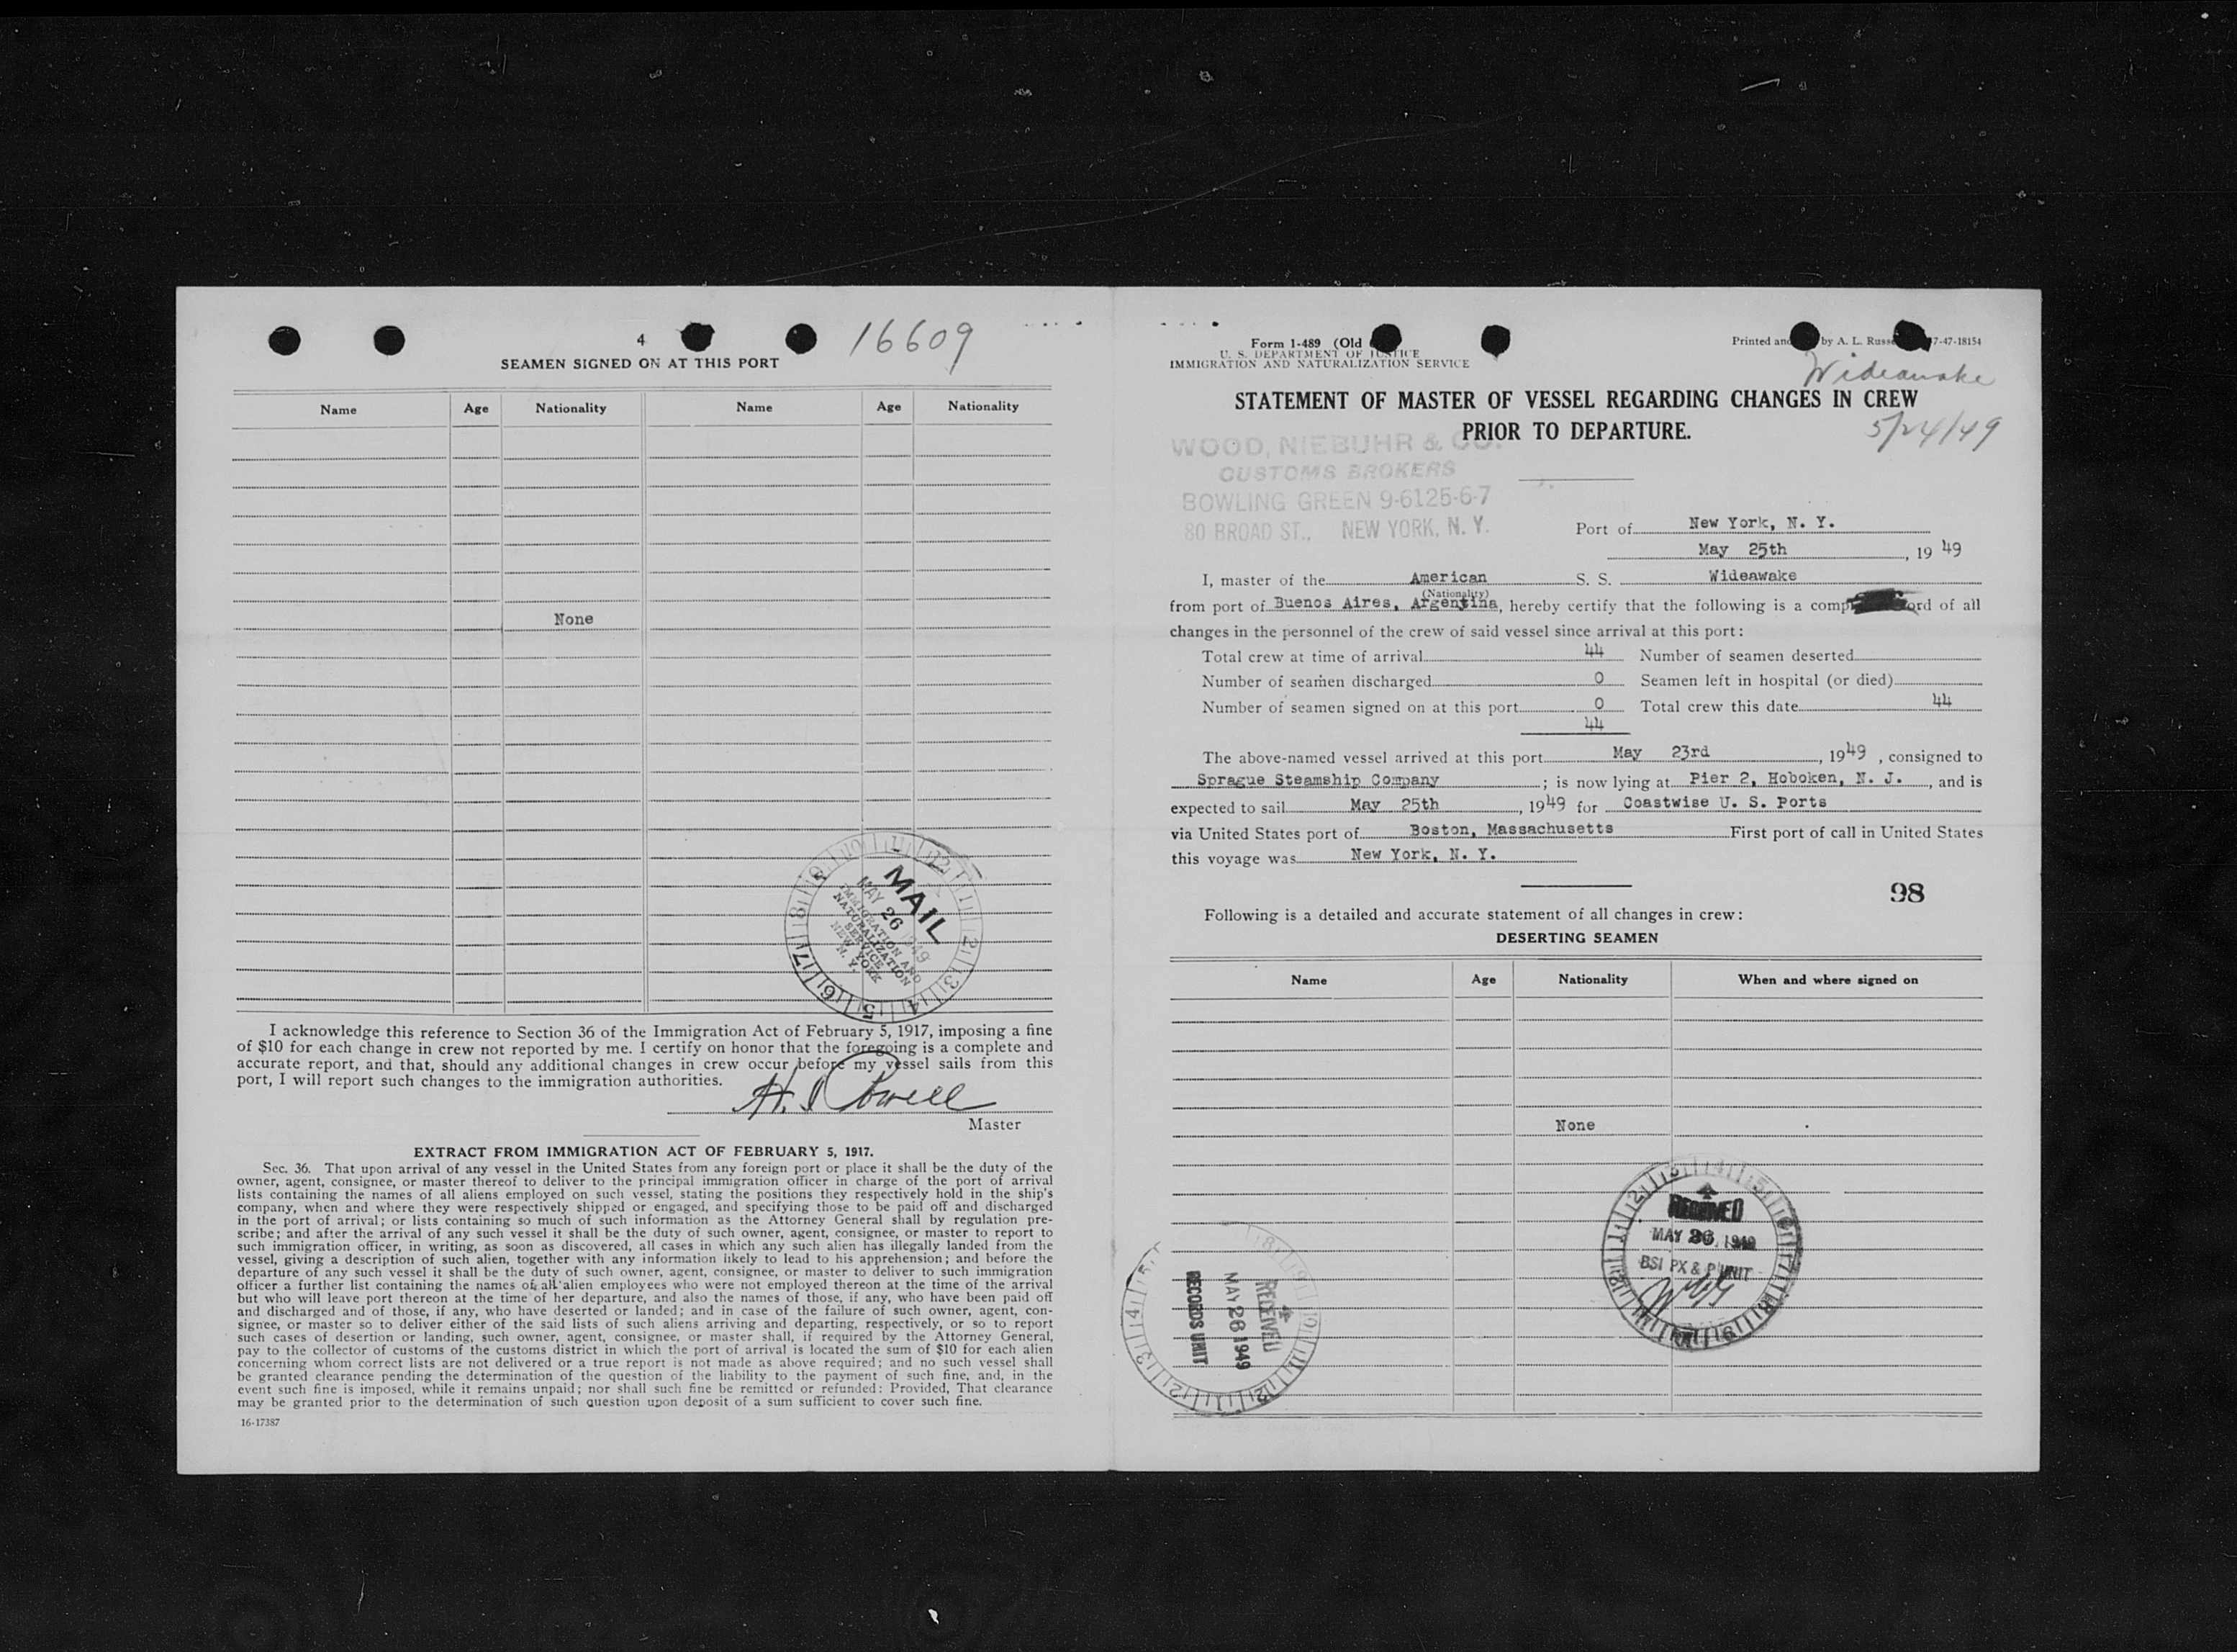 4
16609
SEAMEN SIGNED ON AT THIS PORT
Name Age Nationality Name Age Nationality
None
MAIL
MAY 26 1949
IMMIGRATION AND
NATURALIZATION
SERVICE
NEW YORK
N. Y.
I acknowledge this reference to Section 36 of the Immigration Act of February 5, 1917, imposing a fine
of $10 for each change in crew not reported by me. I certify on honor that the foregoing is a complete and
accurate report, and that, should any additional changes in crew occur before my vessel sails from this
port, I will report such changes to the immigration authorities.
Master
EXTRACT FROM IMMIGRATION ACT OF FEBRUARY 5, 1917.
Sec. 36. That upon arrival of any vessel in the United States from any foreign port or place it shall be the duty of the
owner, agent, consignee, or master thereof to deliver to the principal immigration officer in charge of the port of arrival
lists containing the names of all aliens employed on such vessel, stating the positions they respectively hold in the ship's
company, when and where they were respectively shipped or engaged, and specifying those to be paid off and discharged
in the port of arrival; or lists containing so much of such information as the Attorney General shall by regulation pre-
scribe; and after the arrival of any such vessel it shall be the duty of such owner, agent, consignee, or master to report to
such immigration officer, in writing, as soon as discovered, all cases in which any such alien has illegally landed from the
vessel, giving a description of such alien, together with any information likely to lead to his apprehension; and before the
departure of any such vessel it shall be the duty of such owner, agent, consignee, or master to deliver to such immigration
officer a further list containing the names of all alien employees who were not employed thereon at the time of the arrival
but who will leave port thereon at the time of her departure, and also the names of those, if any, who have been paid off
and discharged and of those, if any, who have deserted or landed; and in case of the failure of such owner, agent, con-
signee, or master so to deliver either of the said lists of such aliens arriving and departing, respectively, or so to report
such cases of desertion or landing, such owner, agent, consignee, or master shall, if required by the Attorney General,
pay to the collector of customs of the customs district in which the port of arrival is located the sum of $10 for each alien
concerning whom correct lists are not delivered or a true report is not made as above required; and no such vessel shall
be granted clearance pending the determination of the question of the liability to the payment of such fine, and, in the
event such fine is imposed, while it remains unpaid; nor shall such fine be remitted or refunded: Provided, That clearance
may be granted prior to the determination of such question upon deposit of a sum sufficient to cover such fine.
16-17387
Form 1-489 (Old
U. S. DEPARTMENT OF JUSTICE
IMMIGRATION AND NATURALIZATION SERVICE
Printed and by A. L. Russ 7-47-18154
Wideawake
STATEMENT OF MASTER OF VESSEL REGARDING CHANGES IN CREW
PRIOR TO DEPARTURE.
5/24/49
WOOD, NIEBUHR & CO.
CUSTOMS BROKERS
BOWLING GREEN 9-6125-6-7
80 BROAD ST., NEW YORK, N. Y.
Port of New York, N. Y.
May 25th, 19 49
I, master of the American S. S. Wideawake
(Nationality)
from port of Buenos Aires, Argentina, hereby certify that the following is a comp ord of all
changes in the personnel of the crew of said vessel since arrival at this port:
Total crew at time of arrival 44 Number of seamen deserted
Number of seamen discharged 0 Seamen left in hospital (or died)
Number of seamen signed on at this port 0 Total crew this date 44
44
The above-named vessel arrived at this port May 23rd, 1949, consigned to
Sprague Steamship Company; is now lying at Pier 2, Hoboken, N. J., and is
expected to sail May 25th, 1949 for Coastwise U. S. Ports
via United States port of Boston, Massachusetts First port of call in United States
this voyage was New York, N. Y.
98
Following is a detailed and accurate statement of all changes in crew:
DESERTING SEAMEN
Name Age Nationality When and where signed on
None
RECEIVED
MAY 26 1949
BSI PX & P UNIT
RECEIVED
MAY 26 1949
RECORDS UNIT